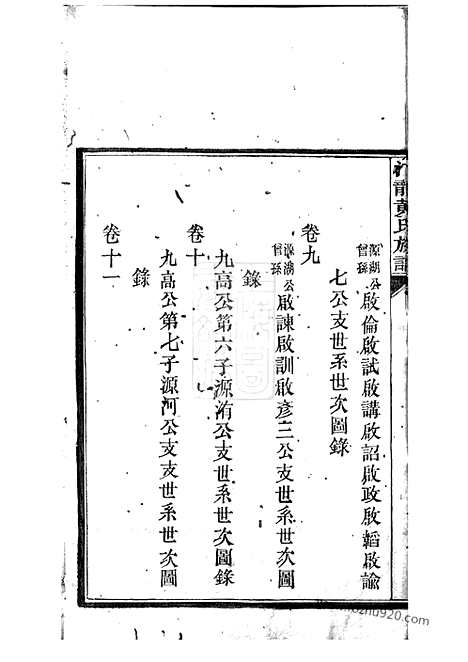 龍黃氏族譜
源湖公曾孫啟倫啟試啟講啟詔啟政啟韜啟諭
七公支世系世次圖錄
卷九
源湖公曾孫啟諫啟訓啟彥三公支世系世次圖
錄
九高公第六子源洧公支世系世次圖錄
卷十
九高公第七子源河公支支世系世次圖
錄
卷十一